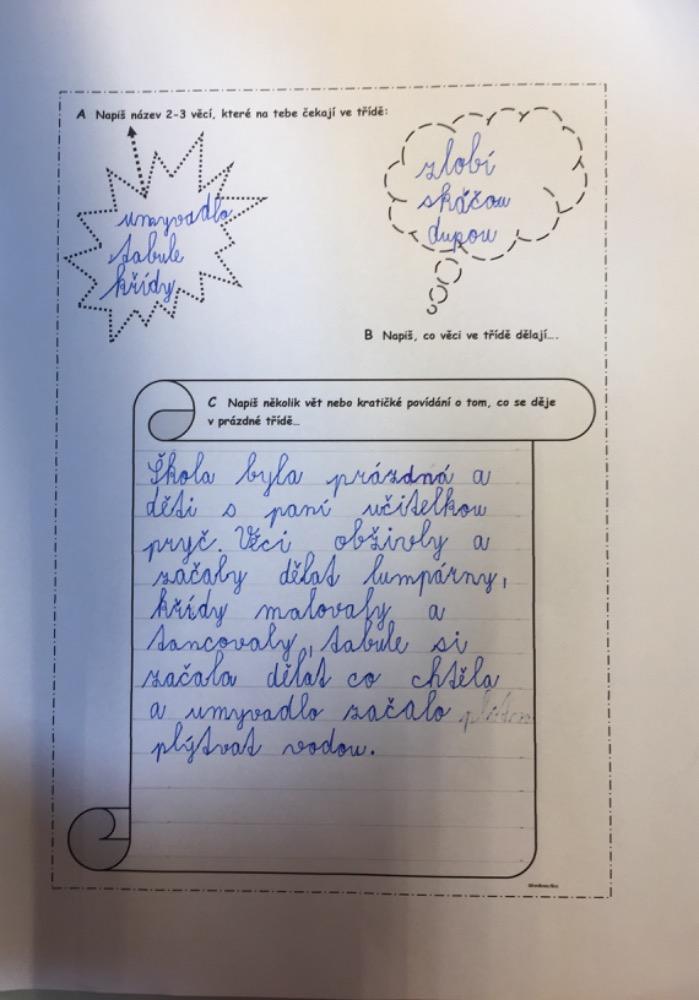 A Napiš název 2-3 věcí, které na tebe čekají ve třídě:
umyvadlo
tabule
křídy
zlobí
skáčou
dupou
B Napiš, co věci ve třídě dělají....
C Napiš několik vět nebo kratičké povídání o tom, co se děje
v prázdné třídě...
Škola byla prázdná a
děti s paní učitelkou
pryč. Věci obživly a
začaly dělat lumpárny,
křídy malovaly a
tancovaly, tabule si
začala dělat co chtěla
a umyvadlo začalo
plýtvat vodou.